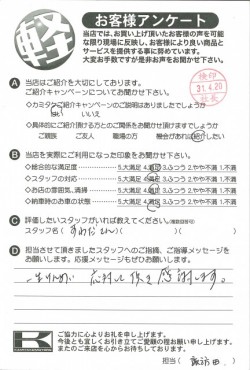 軽
お客様アンケート
当店では、お買い上げ頂いたお客様の声を可能
な限り現場に反映し、お客様により良い商品と
サービスを提供する事に努めています。
大変お手数ですが是非お声をお聞かせ下さい。
検印
31.4.20
店長
A 当店はご紹介を大切にしております。
ご紹介キャンペーンについてお聞かせ下さい。
◇カミタケご紹介キャンペーンのご説明はありましたでしょうか
はい いいえ
◇具体的にご紹介頂ける方とのご関係をお聞かせ頂けますでしょうか
ご親族 ご友人 職場の方 機会があれば紹介したい
B 当店を実際にご利用になった印象をお聞かせ下さい。
◇総合的な満足度 5.大満足 4.満足 3.ふつう 2.やや不満 1.不満
◇スタッフの対応 5.大満足 4.満足 3.ふつう 2.やや不満 1.不満
◇お店の雰囲気、清掃 5.大満足 4.満足 3.ふつう 2.やや不満 1.不満
◇納車時のお車の状態 5.大満足 4.満足 3.ふつう 2.やや不満 1.不満
C 評価したいスタッフがいれば教えてください。(複数回答可)
スタッフ名( すわださん )( )( )
D 担当させて頂きましたスタッフへのご指摘、ご指導メッセージを
お願いします。応援メッセージもぜひお願いします。
応対して頂き感謝します。
ご協力に心よりお礼を申し上げます。
今後とも宜しくお引き立てご愛顧の程お願い申し上げます。
またのご来店を心からお待ちしております。
担当( 諏訪田 )